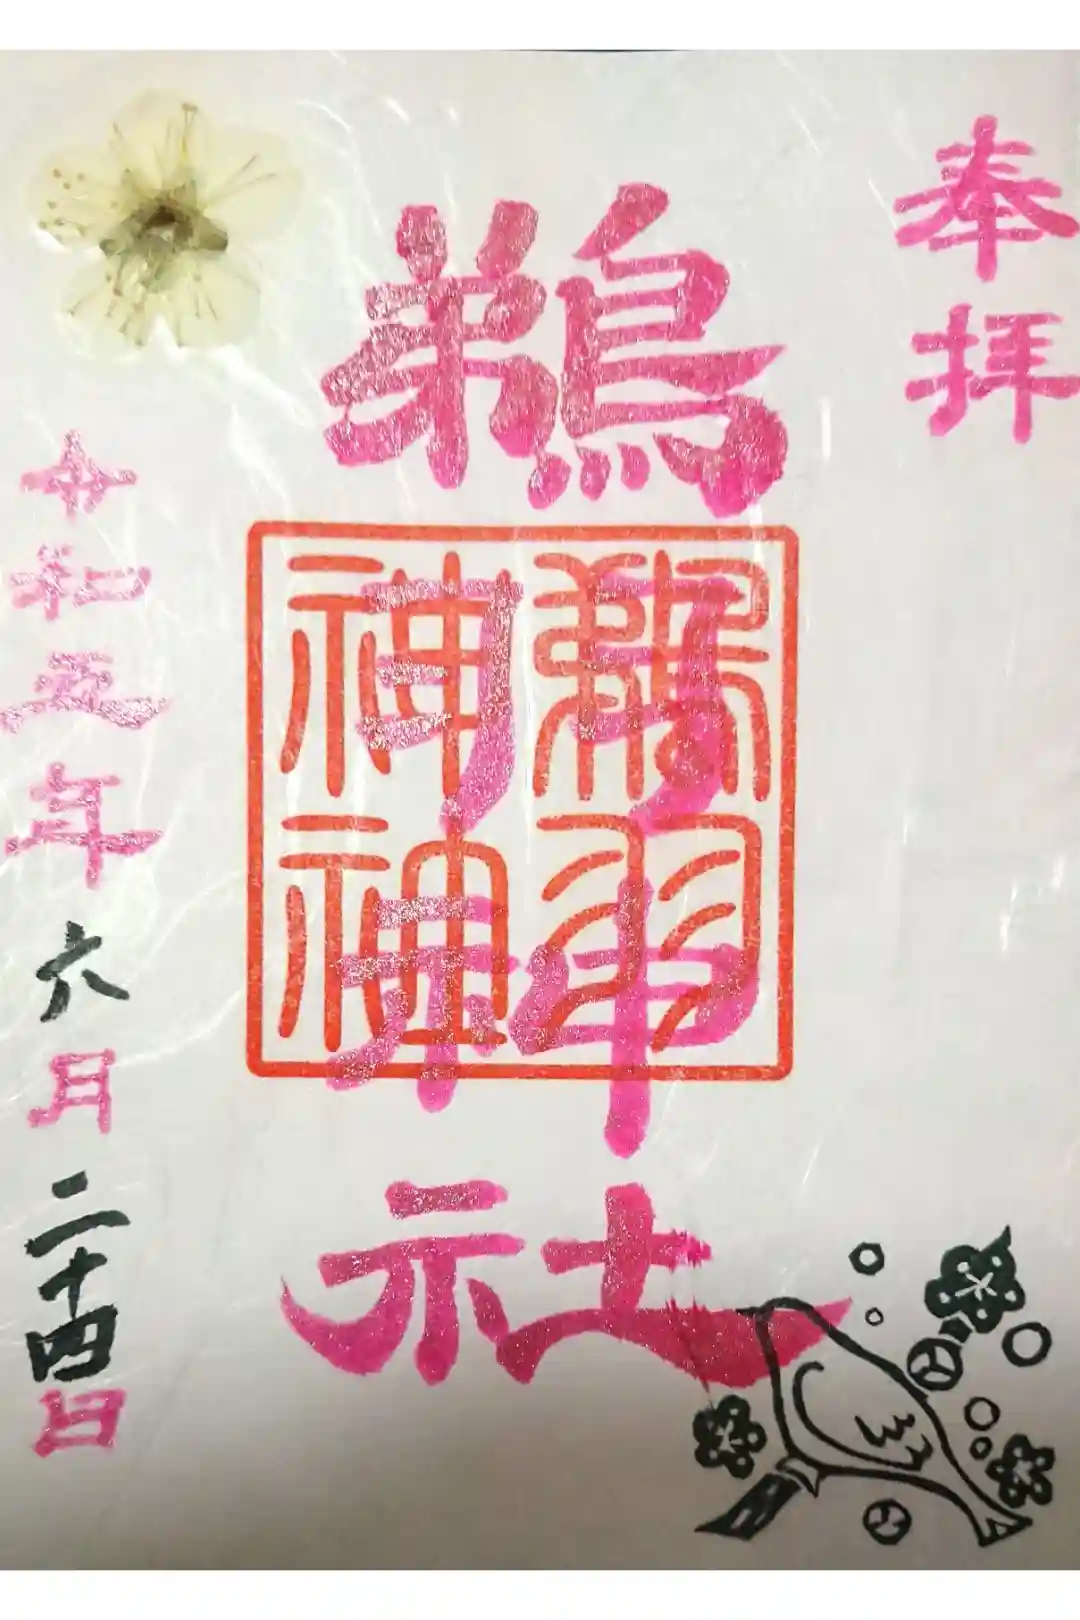 奉拝
鵜羽神社
鵜羽
神社
令和五年六月二十四日